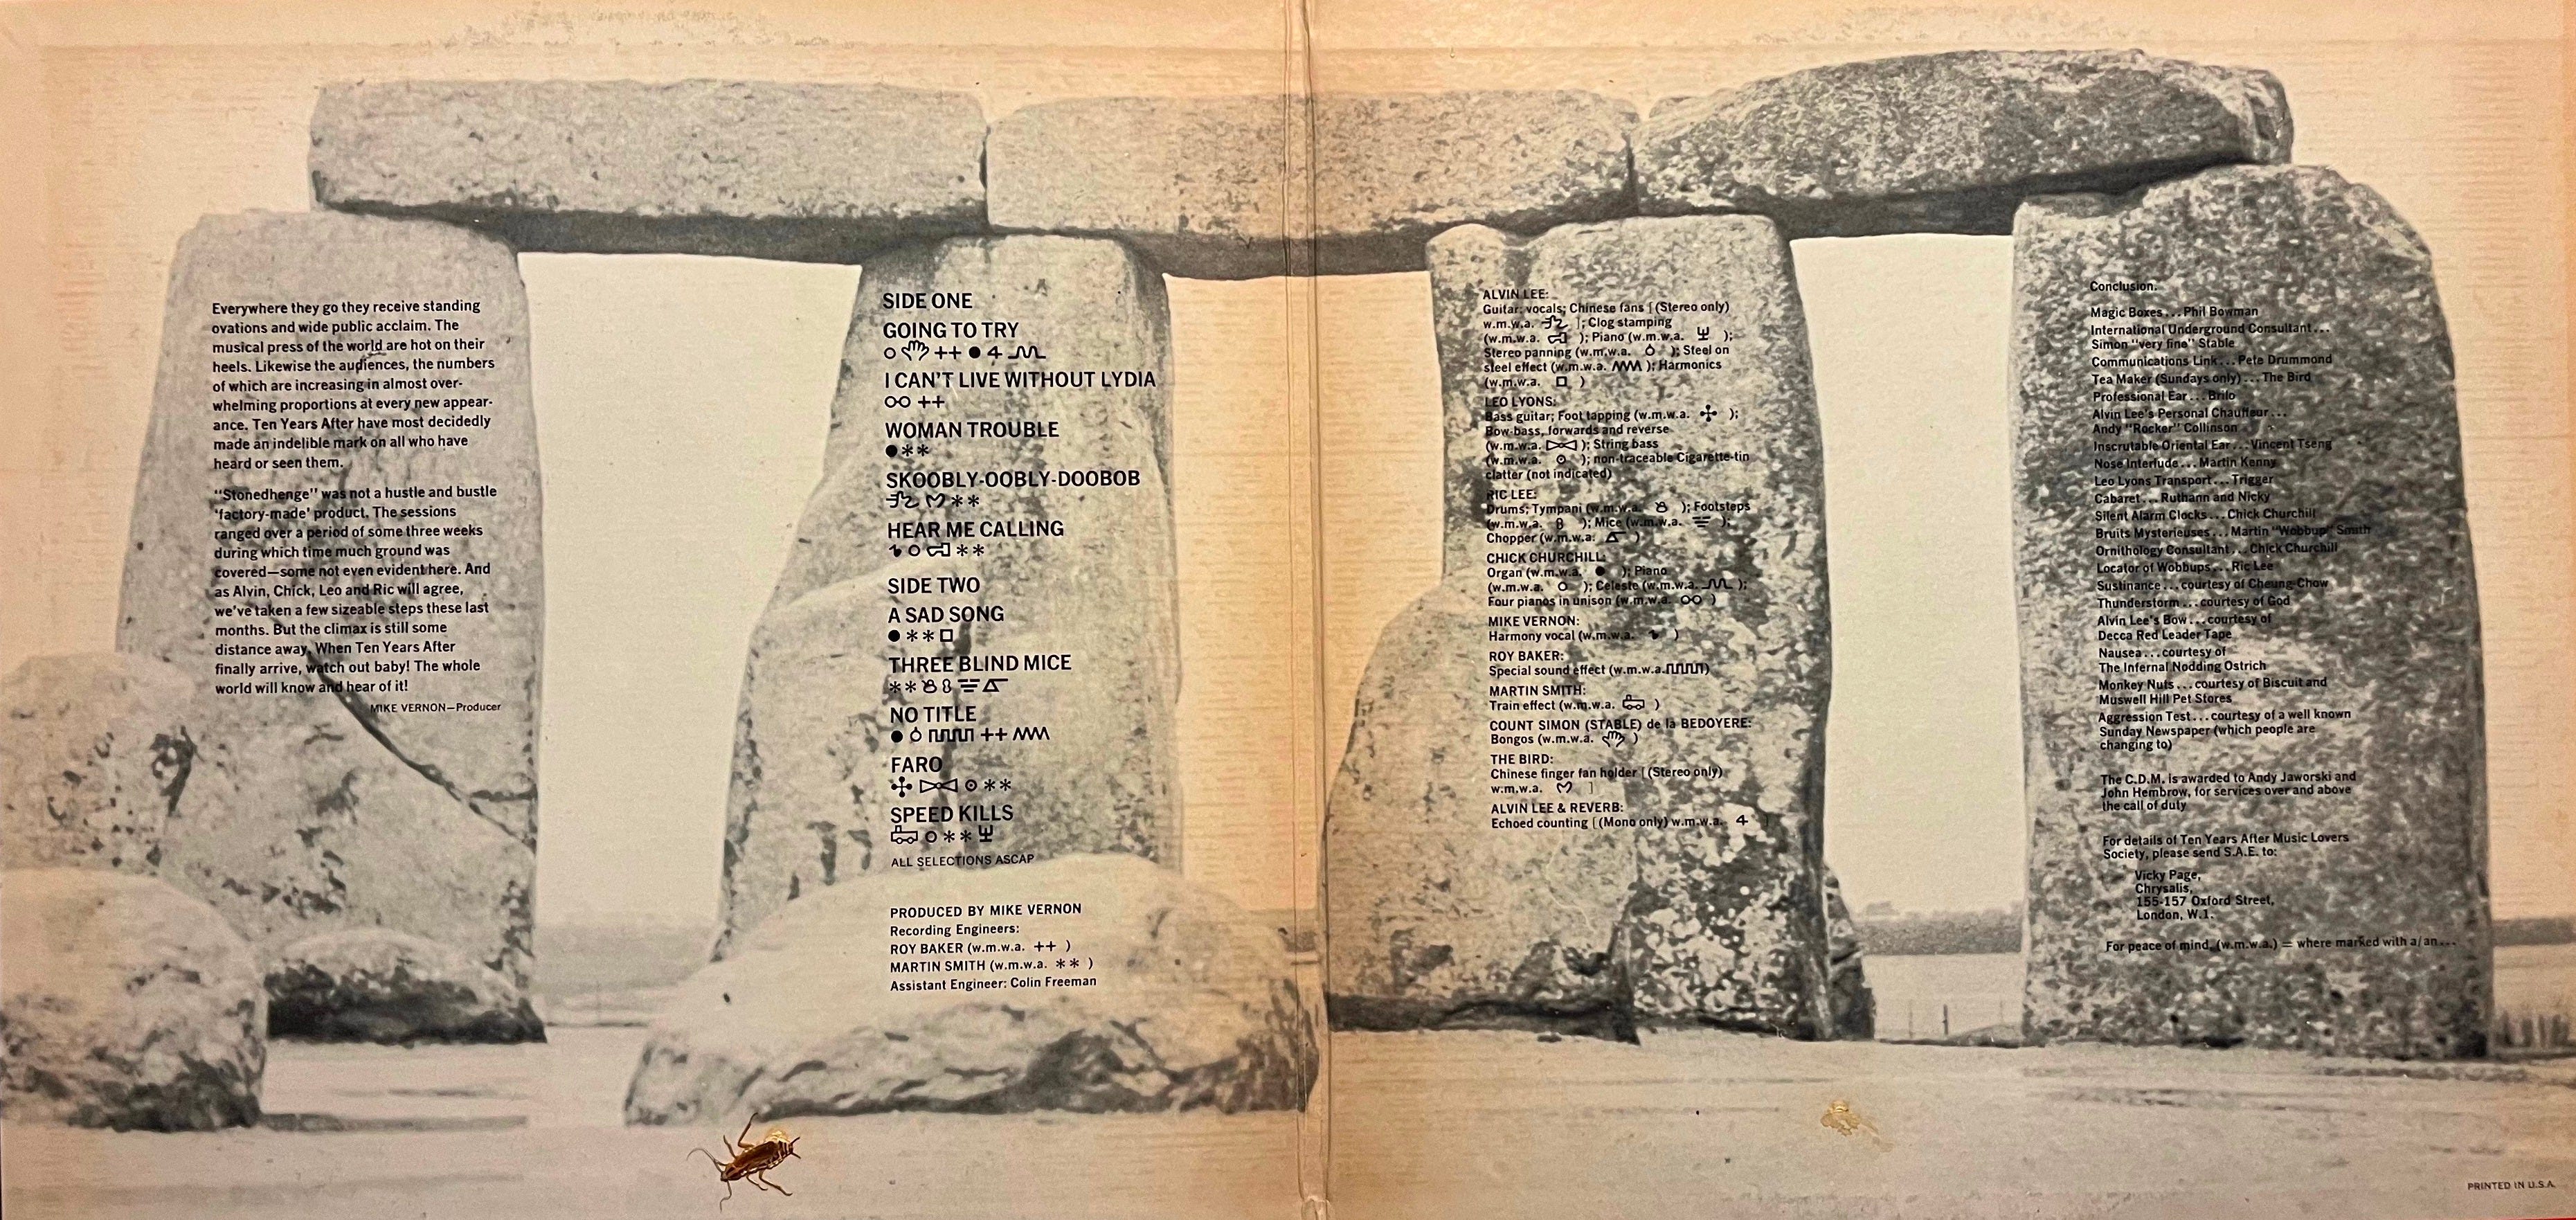 Everywhere they go they receive standing
ovations and wide public acclaim. The
musical press of the world are hot on their
heels. Likewise the audiences, the numbers
of which are increasing in almost over-
whelming proportions at every new appear-
ance. Ten Years After have most decidedly
made an indelible mark on all who have
heard or seen them.
"Stonedhenge" was not a hustle and bustle
'factory-made' product. The sessions
ranged over a period of some three weeks
during which time much ground was
covered—some not even evident here. And
as Alvin, Chick, Leo and Ric will agree,
we've taken a few sizeable steps these last
months. But the climax is still some
distance away. When Ten Years After
finally arrive, watch out baby! The whole
world will know and hear of it!
MIKE VERNON—Producer
SIDE ONE
GOING TO TRY
++ ● 4
I CAN'T LIVE WITHOUT LYDIA
++
WOMAN TROUBLE
●**
SKOOBLY-OOBLY-DOOBOB
**
HEAR ME CALLING
**
SIDE TWO
A SAD SONG
●**□
THREE BLIND MICE
**
NO TITLE
● ++
FARO
**
SPEED KILLS
**
ALL SELECTIONS ASCAP
PRODUCED BY MIKE VERNON
Recording Engineers:
ROY BAKER (w.m.w.a. ++ )
MARTIN SMITH (w.m.w.a. ** )
Assistant Engineer: Colin Freeman
ALVIN LEE:
Guitar; vocals; Chinese fans [ (Stereo only)
w.m.w.a. ]; Clog stamping
(w.m.w.a. ); Piano (w.m.w.a. );
Stereo panning (w.m.w.a. ); Steel on
steel effect (w.m.w.a. ); Harmonics
(w.m.w.a. □ )
LEO LYONS:
Bass guitar; Foot tapping (w.m.w.a. );
Bow-bass, forwards and reverse
(w.m.w.a. ); String bass
(w.m.w.a. ⊙ ); non-traceable Cigarette-tin
clatter (not indicated)
RIC LEE:
Drums; Tympani (w.m.w.a. ); Footsteps
(w.m.w.a. ); Mice (w.m.w.a. );
Chopper (w.m.w.a. )
CHICK CHURCHILL:
Organ (w.m.w.a. ● ); Piano
(w.m.w.a. O ); Celeste (w.m.w.a. );
Four pianos in unison (w.m.w.a. )
MIKE VERNON:
Harmony vocal (w.m.w.a. )
ROY BAKER:
Special sound effect (w.m.w.a. )
MARTIN SMITH:
Train effect (w.m.w.a. )
COUNT SIMON (STABLE) de la BEDOYERE:
Bongos (w.m.w.a. )
THE BIRD:
Chinese finger fan holder [ (Stereo only)
w.m.w.a. ]
ALVIN LEE & REVERB:
Echoed counting [ (Mono only) w.m.w.a. 4 ]
Conclusion.
Magic Boxes...Phil Bowman
International Underground Consultant...
Simon "very fine" Stable
Communications Link...Pete Drummond
Tea Maker (Sundays only)...The Bird
Professional Ear...Brilo
Alvin Lee's Personal Chauffeur...
Andy "Rocker" Collinson
Inscrutable Oriental Ear...Vincent Tseng
Nose Interlude...Martin Kenny
Leo Lyons Transport...Trigger
Cabaret...Ruthann and Nicky
Silent Alarm Clocks...Chick Churchill
Bruits Mysterieuses...Martin "Wobbup" Smith
Ornithology Consultant...Chick Churchill
Locator of Wobbups...Ric Lee
Sustinance...courtesy of Cheung Chow
Thunderstorm...courtesy of God
Alvin Lee's Bow...courtesy of
Decca Red Leader Tape
Nausea...courtesy of
The Infernal Nodding Ostrich
Monkey Nuts...courtesy of Biscuit and
Muswell Hill Pet Stores
Aggression Test...courtesy of a well known
Sunday Newspaper (which people are
changing to)
The C.D.M. is awarded to Andy Jaworski and
John Hembrow, for services over and above
the call of duty
For details of Ten Years After Music Lovers
Society, please send S.A.E. to:
Vicky Page,
Chrysalis,
155-157 Oxford Street,
London, W.1.
For peace of mind, (w.m.w.a.) = where marked with a/an...
PRINTED IN U.S.A.